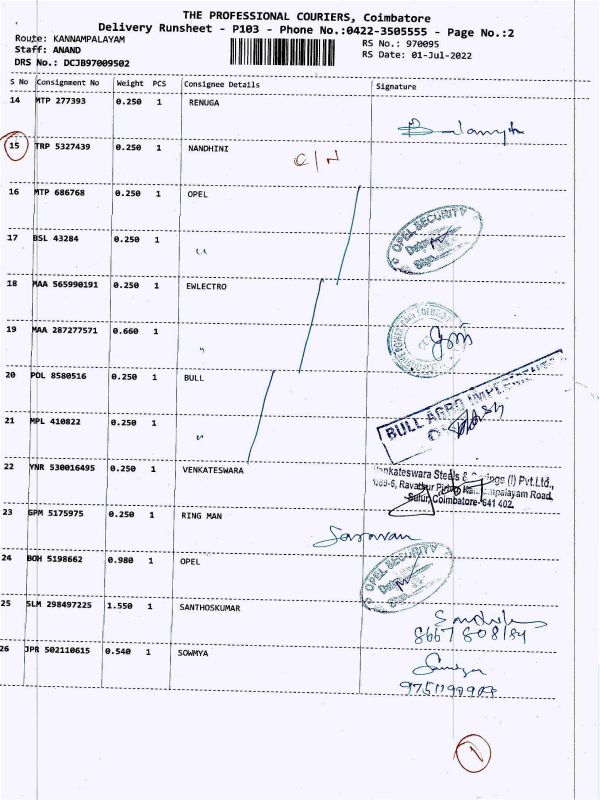 THE PROFESSIONAL COURIERS, Coimbatore
Delivery Runsheet - P103 - Phone No.:0422-3505555 - Page No.:2
Route: KANNAMPALAYAM
RS No.: 970095
Staff: ANAND
RS Date: 01-Jul-2022
DRS No.: DCJB97009502
S No Consignment No Weight PCS Consignee Details Signature
14 MTP 277393 0.250 1 RENUGA
15 TRP 5327439 0.250 1 NANDHINI C/N
16 MTP 686768 0.250 1 OPEL
OPEL SECURITY
17 BSL 43284 0.250 1 "
18 MAA 565990191 0.250 1 EWLECTRO
19 MAA 287277571 0.660 1 "
20 POL 8580516 0.250 1 BULL
BULL AGRO IMPLEMENTS
21 MPL 410822 0.250 1 "
22 YNR 530016495 0.250 1 VENKATESWARA
Venkateswara Steels & Springs (I) Pvt.Ltd.,
Palayam Road,
Sulur, Coimbatore-641 402.
23 GPM 5175975 0.250 1 RING MAN
Saravan
24 BOH 5198662 0.980 1 OPEL
OPEL SECURITY
25 SLM 298497225 1.550 1 SANTHOSKUMAR
8667808184
26 JPR 502110615 0.540 1 SOWMYA
1